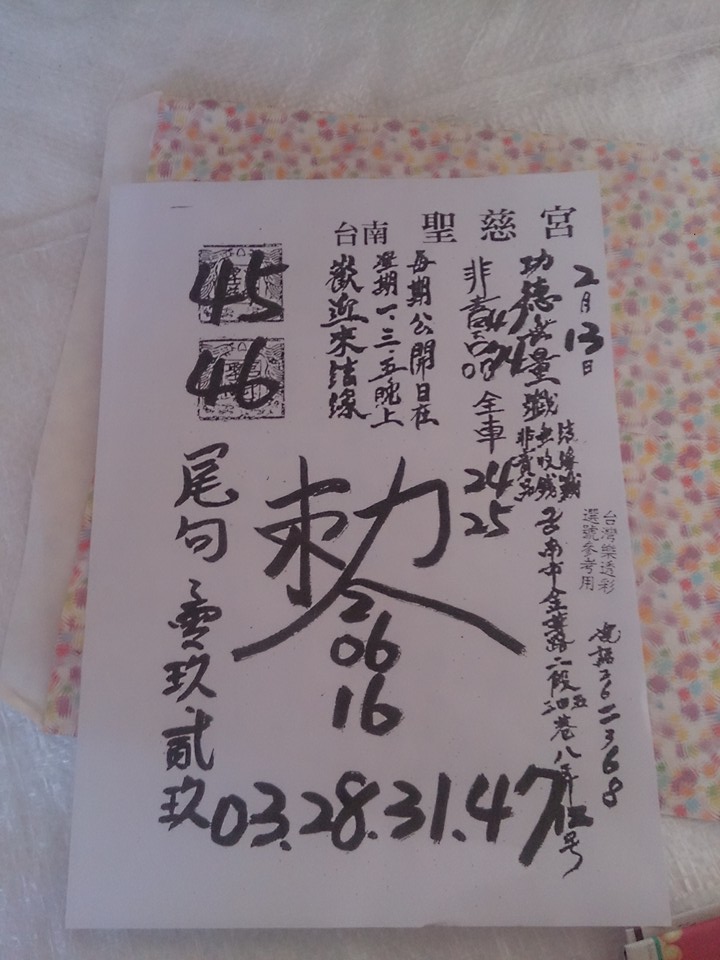 台南 聖慈宮
2月13日
功德無量籤
法緣籤
無收錢
非賣品
台灣樂透彩
選號參考用
電話2622368
台南市金華路二段
非
全車
24
25
每期公開日在
星期一.三.五晚上
歡迎來法緣
45
46
勅令
2
06
16
尾句
零玖
貳玖
03.28.31.47